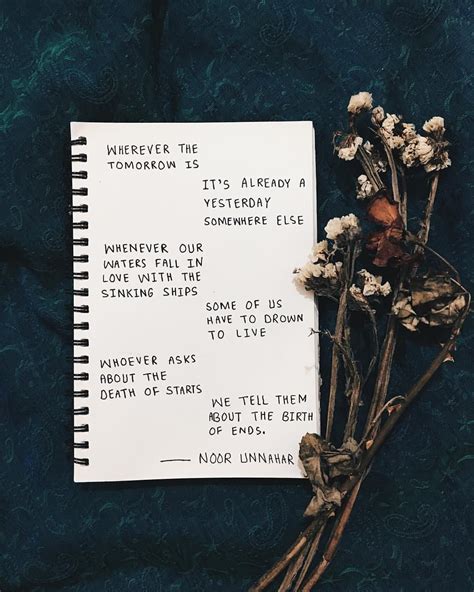 WHEREVER THE
TOMORROW IS
IT'S ALREADY A
YESTERDAY
SOMEWHERE ELSE
WHENEVER OUR
WATERS FALL IN
LOVE WITH THE
SINKING SHIPS
SOME OF US
HAVE TO DROWN
TO LIVE
WHOEVER ASKS
ABOUT THE
DEATH OF STARTS
WE TELL THEM
ABOUT THE BIRTH
OF ENDS.
— NOOR UNNAHAR